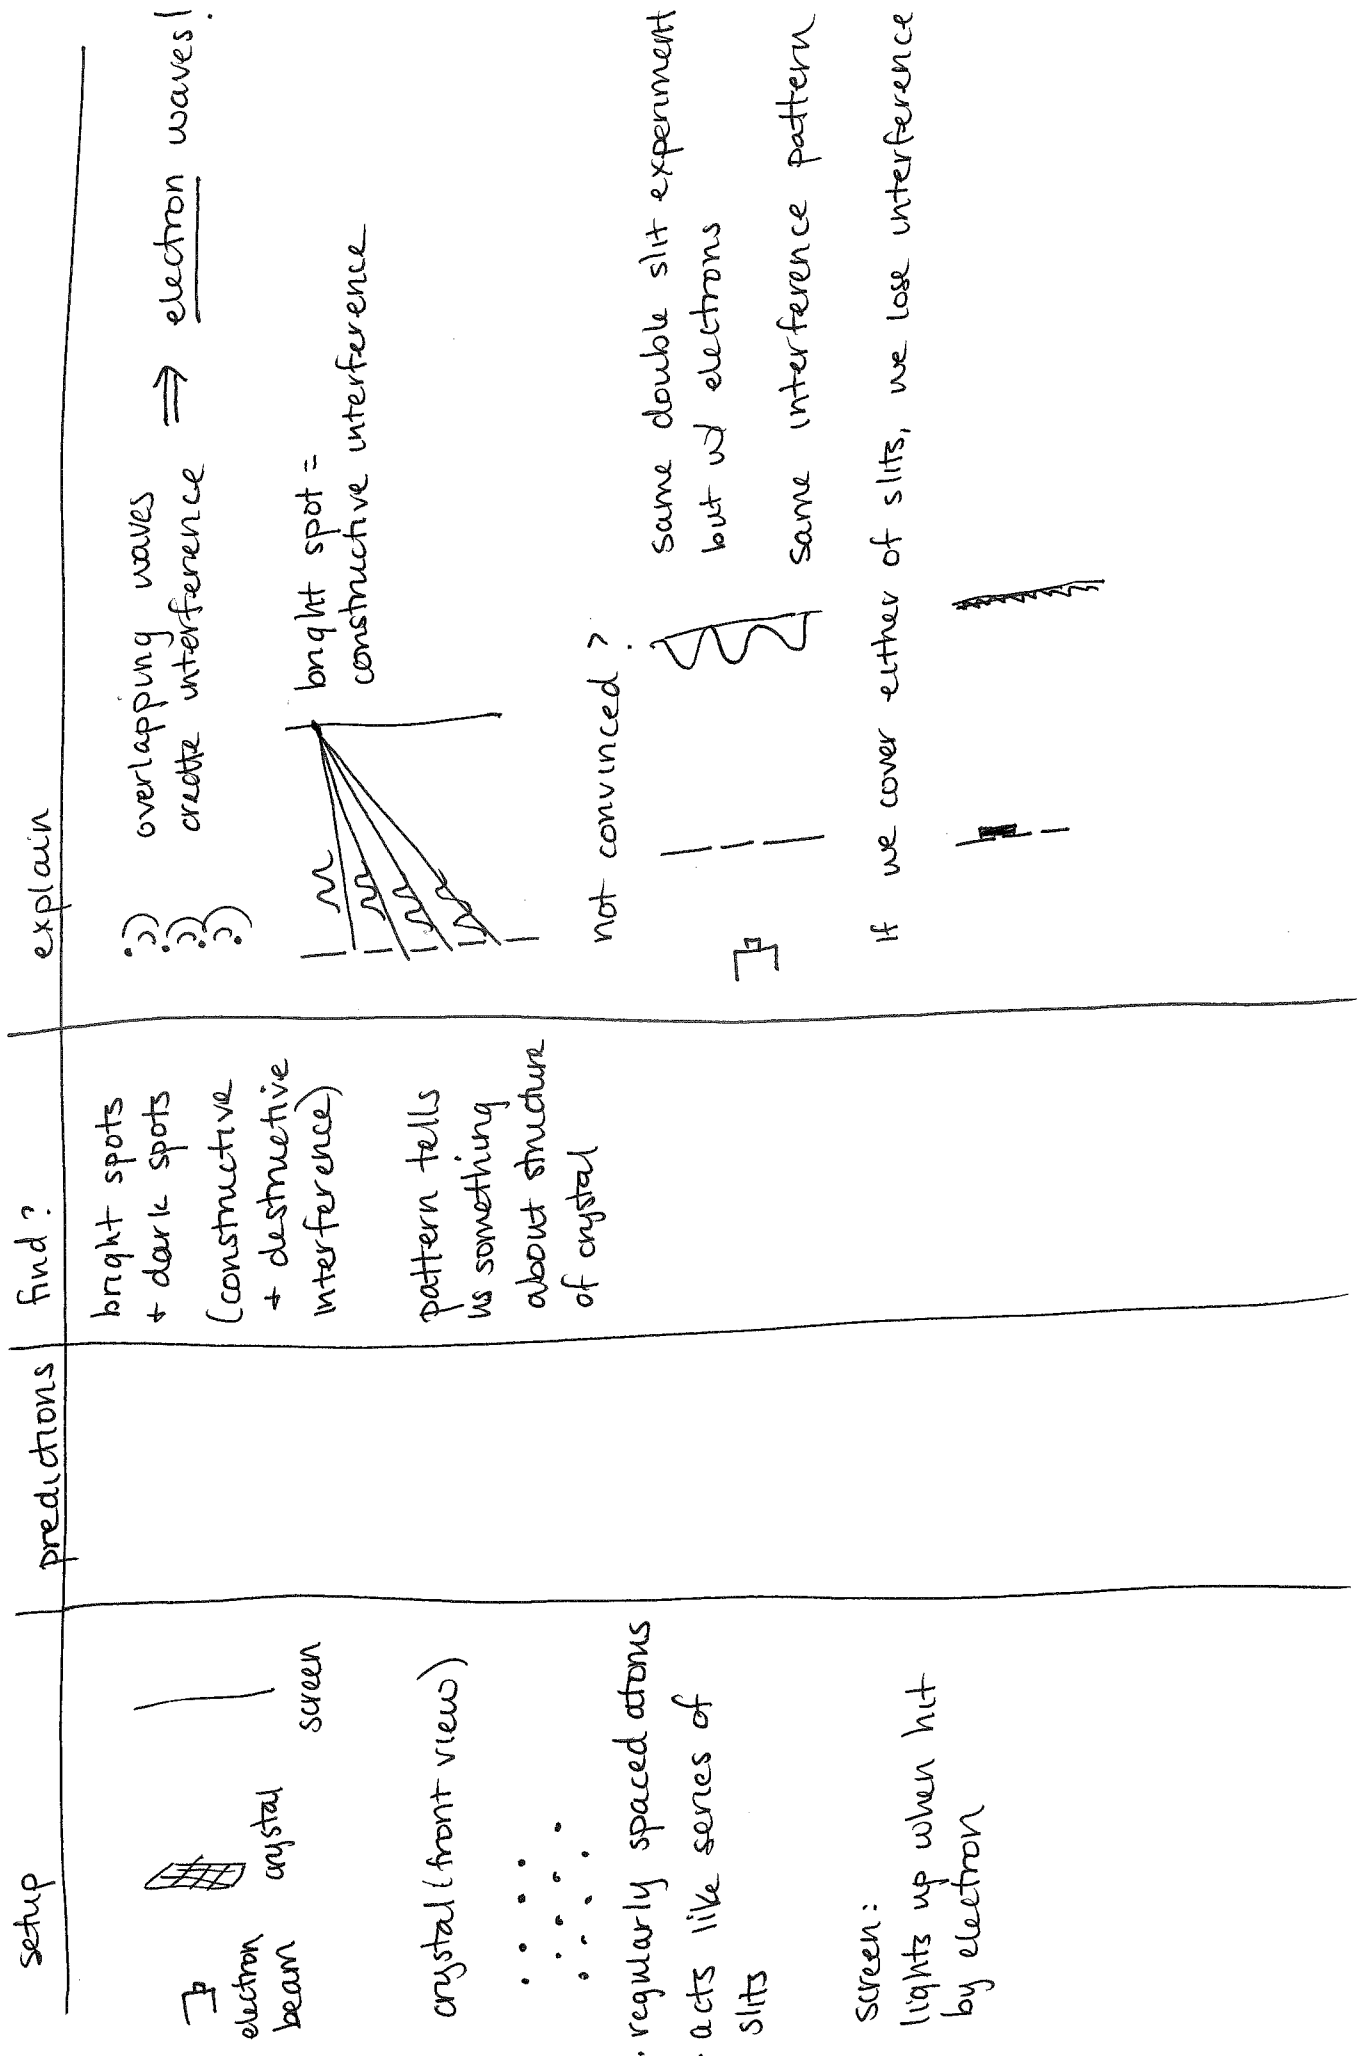 setup
predictions
find?
explain
electron
beam
crystal
screen
crystal (front view)
· regularly spaced atoms
· acts like series of
slits
screen:
lights up when hit
by electron
bright spots
+ dark spots
(constructive
+ destructive
interference)
pattern tells
us something
about structure
of crystal
overlapping waves
create interference ⇒ electron waves!
bright spot =
constructive interference
not convinced?
same double slit experiment
but w/ electrons
same interference pattern
If we cover either of slits, we lose interference